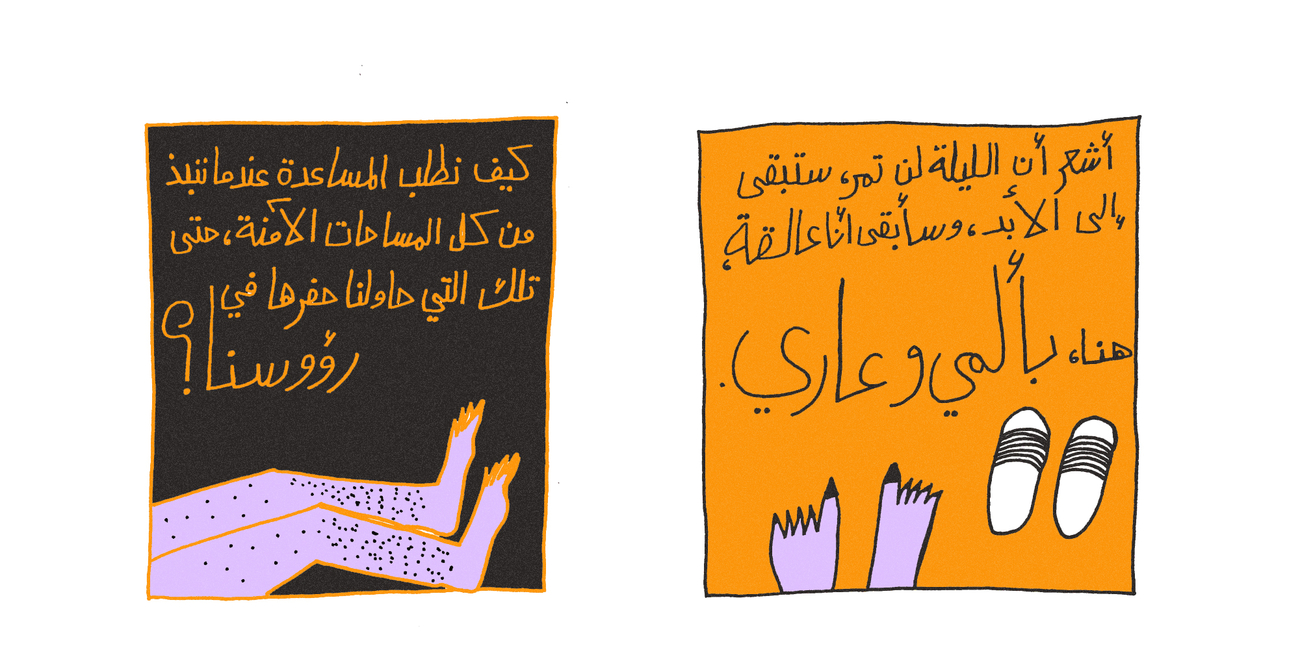 أشعر أن الليلة لن تمر، ستبقى
إلى الأبد، وسأبقى أنا عالقة،
هنا، بألمي وعاري.
كيف نطلب المساعدة عندما ننبذ
من كل المساحات الآمنة، حتى
تلك التي حاولنا حفرها في
رؤوسنا؟